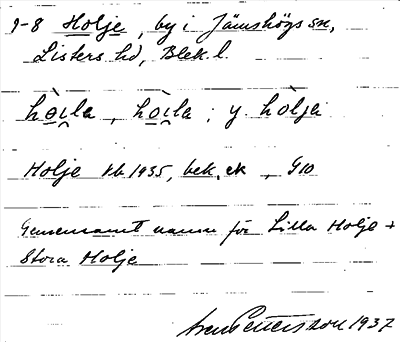 9-8 Holje, by i Jämshögs sn,
Listers hd, Blek. l.
hòila, hòila; y. hòlja
Holje kb 1935, bek. ek, G10
Gemensamt namn för Lilla Holje +
Stora Holje
Pettersson 1937